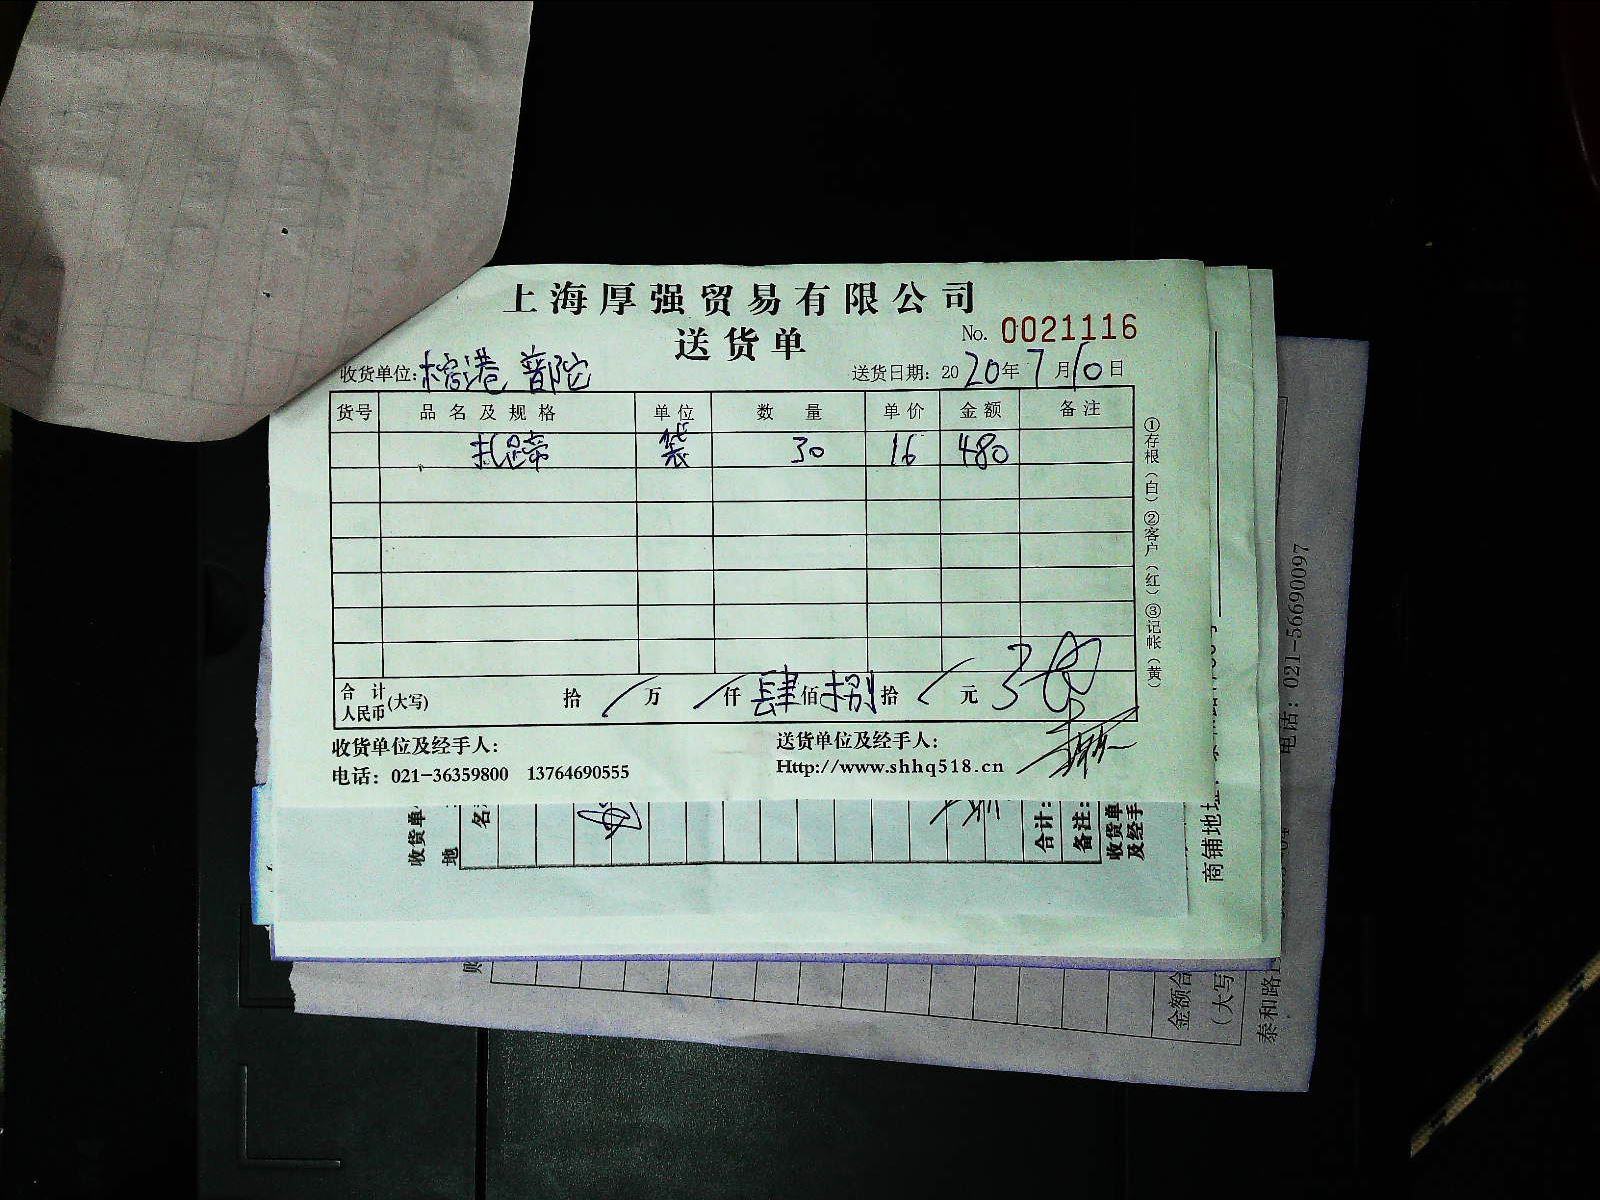 上海厚强贸易有限公司
送货单
No. 0021116
收货单位: 榕港 普陀
送货日期: 2020年7月10日
货号 品名及规格 单位 数量 单价 金额 备注
扎蹄 袋 30 16 480
合计人民币(大写) 拾 / 万 / 仟 肆 佰 捌 拾 / 元
①存根(白) ②客户(红) ③记帐(黄)
收货单位及经手人:
送货单位及经手人:
电话: 021-36359800 13764690555
Http://www.shhq518.cn
收货单
地
名
合计:
备注:
收货单
及经手
商铺地址
电话: 021-56690097
金额合
(大写
泰和路